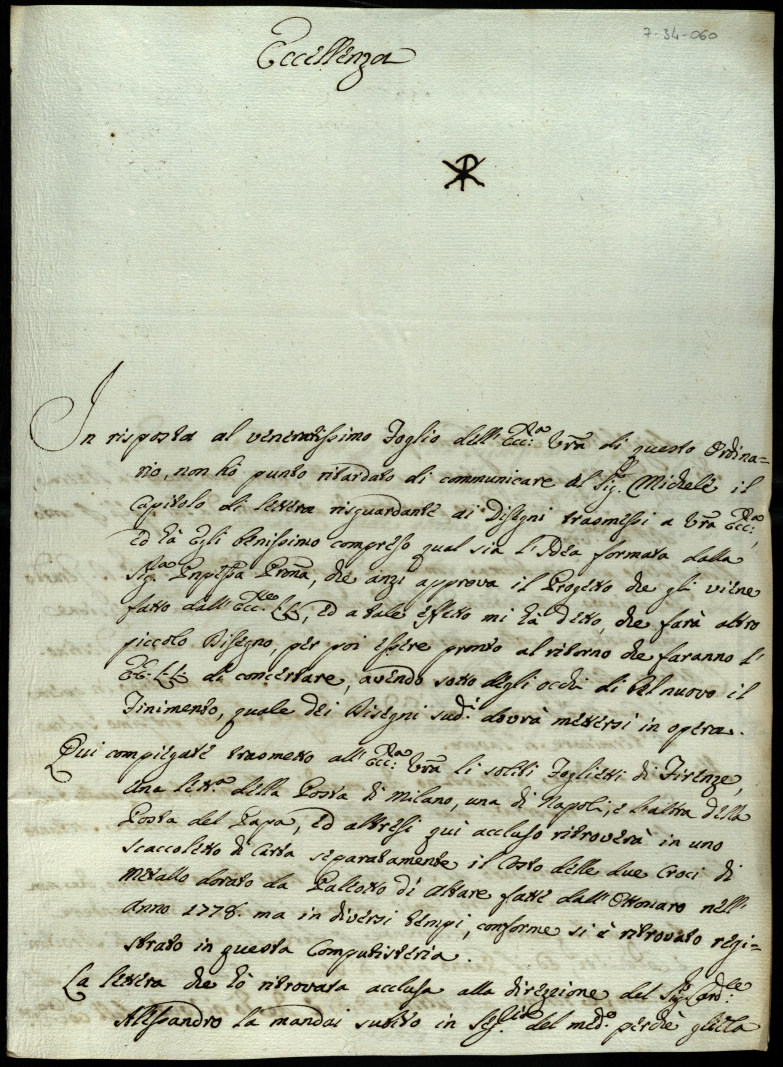 7-34-060
Eccellenza
In risposta al veneratissimo Foglio dell'Ecc:ª Vr̃a di questo Ordina=
rio, non hò punto ritardato di communicare al Sig.r Michele il
Capitolo di lettera risguardante ai Disegni trasmessi a Vr̃a Ecc:ª,
ed hà Egli benissimo compreso qual sia l'Idea formata dalla
Sig.ra Pnp̃essa Pr̃ona, che anzi approva il Progetto che gli viene
fatto dall'Ecc:ze LL:, ed a tale effetto mi hà detto, che farà altro
piccolo Disegno, per poi essere pronto al ritorno che faranno l'
EE: LL: di concertare, avendo sotto degli occhi di bel nuovo il
Finimento, quale dei Disegni sud.i dovrà mettersi in opera.
Qui compiegate trasmetto all'Ecc:ª Vr̃a li soliti Foglietti di Firenze,
una lett.ª della Posta di Milano, una di Napoli, e l'altra della
Posta del Papa, ed altresì qui accluso ritroverà in uno
scaccoletto di Carta separatamente il Costo delle due Croci di
Metallo dorato da Paliotto di Altare fatte dall'Ottonaro nell'
Anno 1778. ma in diversi tempi, conforme si è ritrovato regi=
strato in questa Computisteria.
La lettera che hò ritrovata acclusa alla direzione del Sig.r Card:le
Alessandro la mandai subito in Seg.ria del med.º perchè gliela